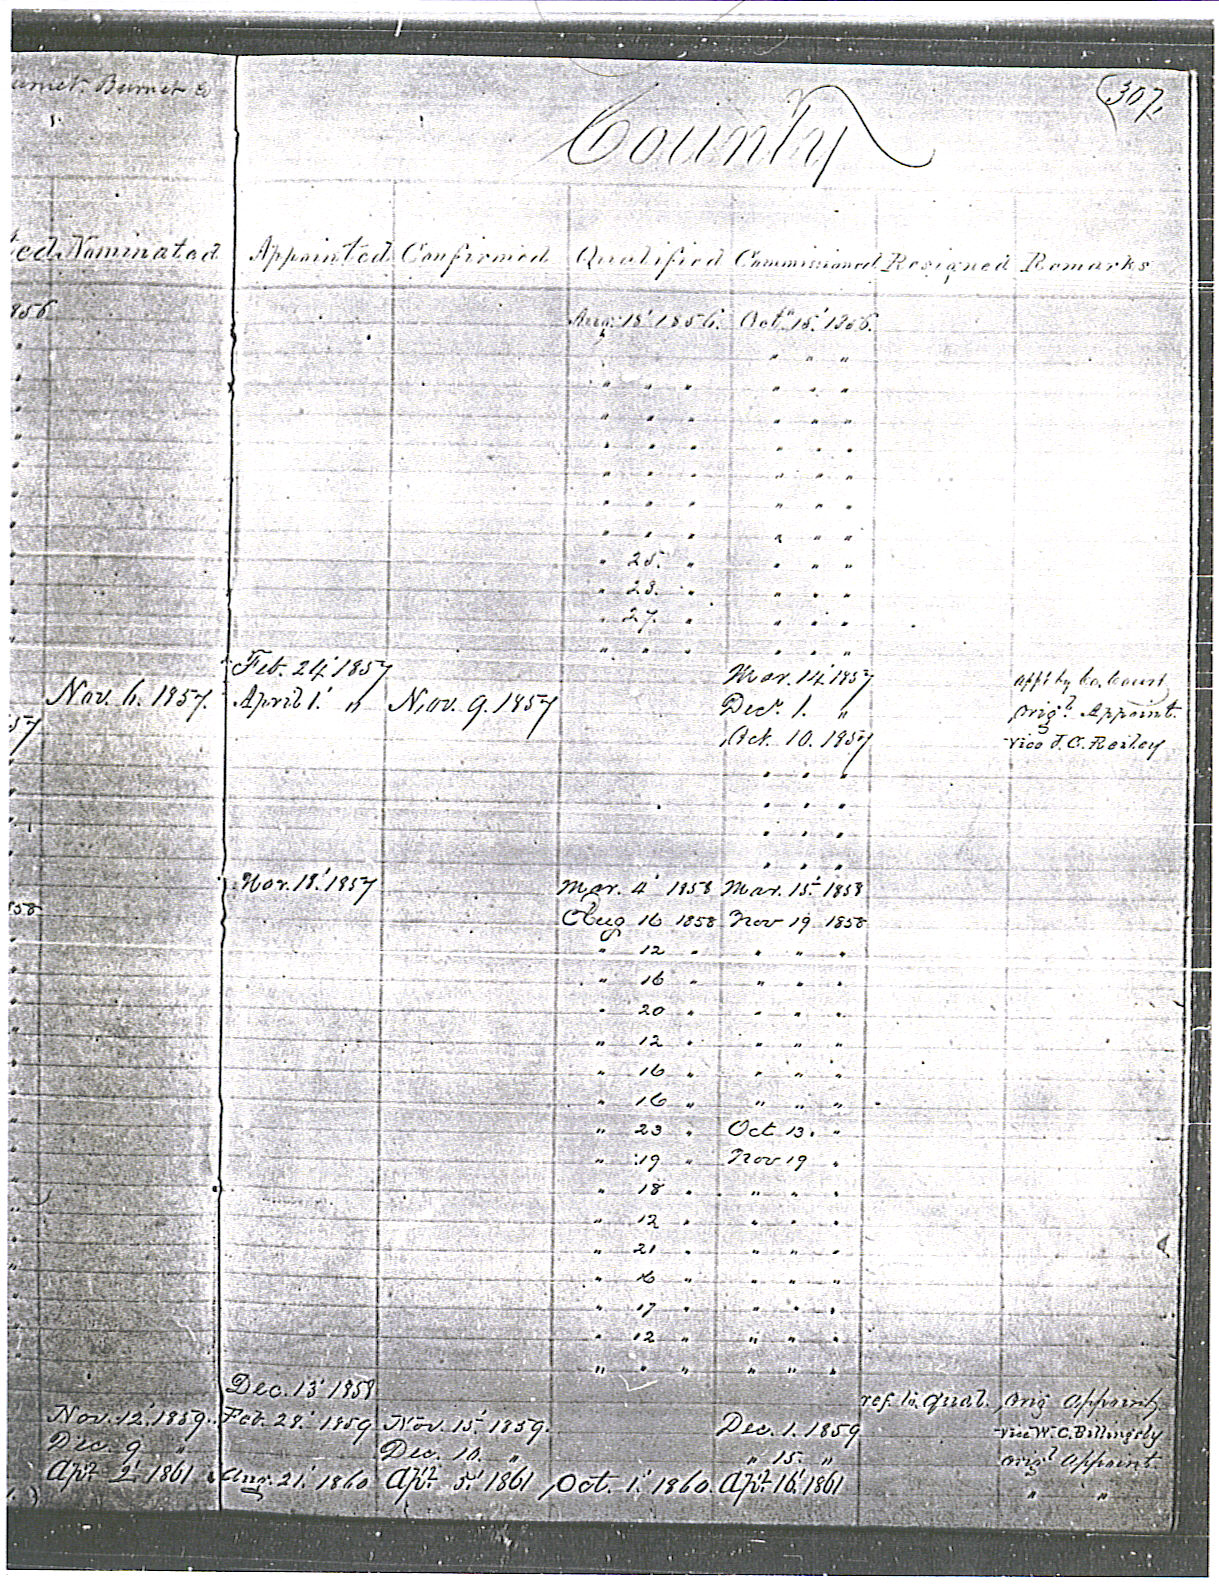 Burnet
(307.
County
Nominated Appointed Confirmed Qualified Commissioned Resigned Remarks
856 Aug. 18' 1856. Oct. 15.' 1856.
" " "
" " " " " "
" " " " " "
" " " " " "
" " " " " "
" " " " " "
" " " " " "
" 25. " " " "
" 23. " " " "
" 27. " " " "
" " " " " "
Feb. 24.' 1857 Mar. 14.' 1857 appt by Co. Court
Nov. 6. 1857. April 1.' " Nov. 9. 1857 Dec. 1. " orig.l Appoint.
57 Oct. 10. 1857 vice J. C. Reiley
" " "
" " "
" " "
" " "
Nov. 18.' 1857 Mar. 4' 1858 Mar. 15.' 1858
858 Aug 16 1858 Nov 19 1858
" 12 " " " "
" 16 " " " "
" 20 " " " "
" 12 " " " "
" 16 " " " "
" 16 " " " "
" 23 " Oct 13. "
" 19 " Nov 19 "
" 18 " " " "
" 12 " " " "
" 21 " " " "
" 6 " " " "
" 17 " " " "
" 12 " " " "
" " " " " "
Dec. 13.' 1858 ref. to Qual. orig Appoint.
Nov. 12.' 1859. Feb. 28.' 1859 Nov. 15.' 1859. Dec. 1. 1859 vice W. C. Billingsby
Dec. 9 " Dec. 10. " " 15. " orig.l Appoint.
Apr. 2.' 1861 Aug. 21.' 1860 Apr. 5.' 1861 Oct. 1.' 1860 Apr. 16.' 1861 " "